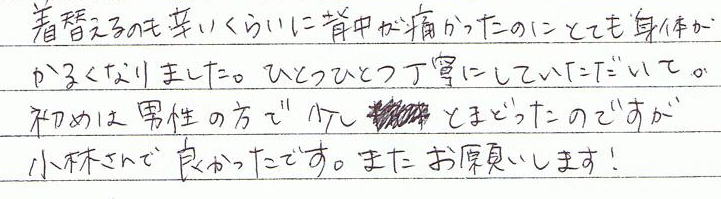 着替えるのも辛いくらいに背中が痛かったのにとても身体が
かるくなりました。ひとつひとつ丁寧にしていただいて。
初めは男性の方で少しとまどったのですが
小林さんで良かったです。またお願いします！